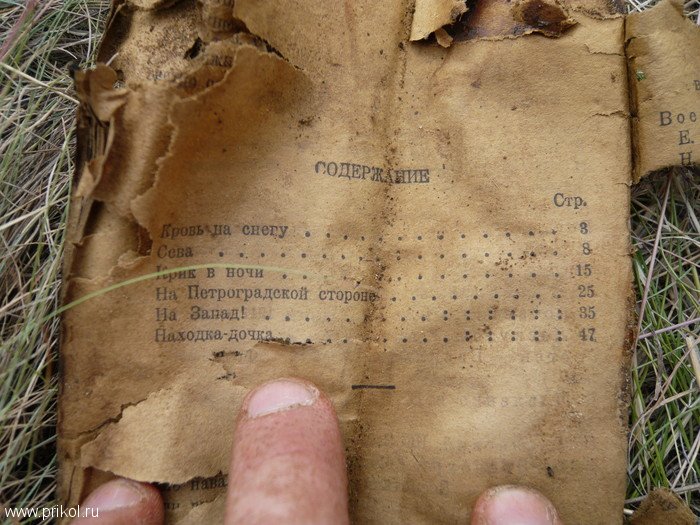 СОДЕРЖАНИЕ
Стр.
Кровь на снегу . . . . . . . . . . . . . . . 3
Сева . . . . . . . . . . . . . . . 8
Крик в ночи . . . . . . . . . . . . . . . 15
На Петроградской стороне . . . . . . . . . . . 25
На Запад! . . . . . . . . . . . . . . . 35
Находка-дочка . . . . . . . . . . . . . . . 47
Вое
Е.
Н
www.prikol.ru